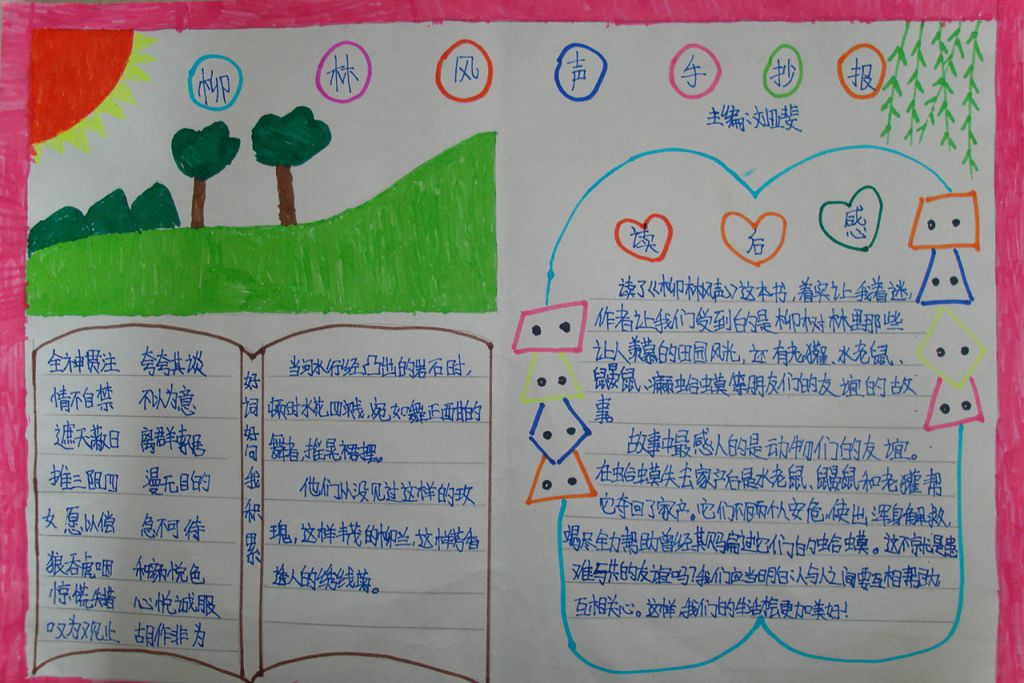 柳林风声手抄报
主编:刘亚斐
全神贯注 夸夸其谈
情不自禁 不以为意
遮天蔽日 离群索居
推三阻四 漫无目的
如愿以偿 急不可待
狼吞虎咽 和颜悦色
惊慌失措 心悦诚服
叹为观止 胡作非为
好词好句我积累
当河水行经凸出的岩石时,
顿时水花四溅,宛如舞正西曲的
舞者,摇晃裙摆。
他们从没见过这样的玫
瑰,这样丰茂的柳兰,这样馨香
诱人的绣线菊。
读后感
读了《柳林风声》这本书,着实让我着迷,
作者让我们受到的是柳树林里那些
让人羡慕的田园风光,还有老獾、水老鼠、
鼹鼠、癞蛤蟆等朋友们的友谊的故
事
故事中最感人的是动物们的友谊。
在蛤蟆失去家产后是水老鼠、鼹鼠和老獾帮
它夺回了家产。它们不顾个人安危,使出浑身解数,
竭尽全力帮助曾经其吗骗过它们的蛤蟆。这不就是患
难与共的友谊吗?我们应当明白:人与人之间要互相帮助
互相关心。这样,我们的生活会更加美好!